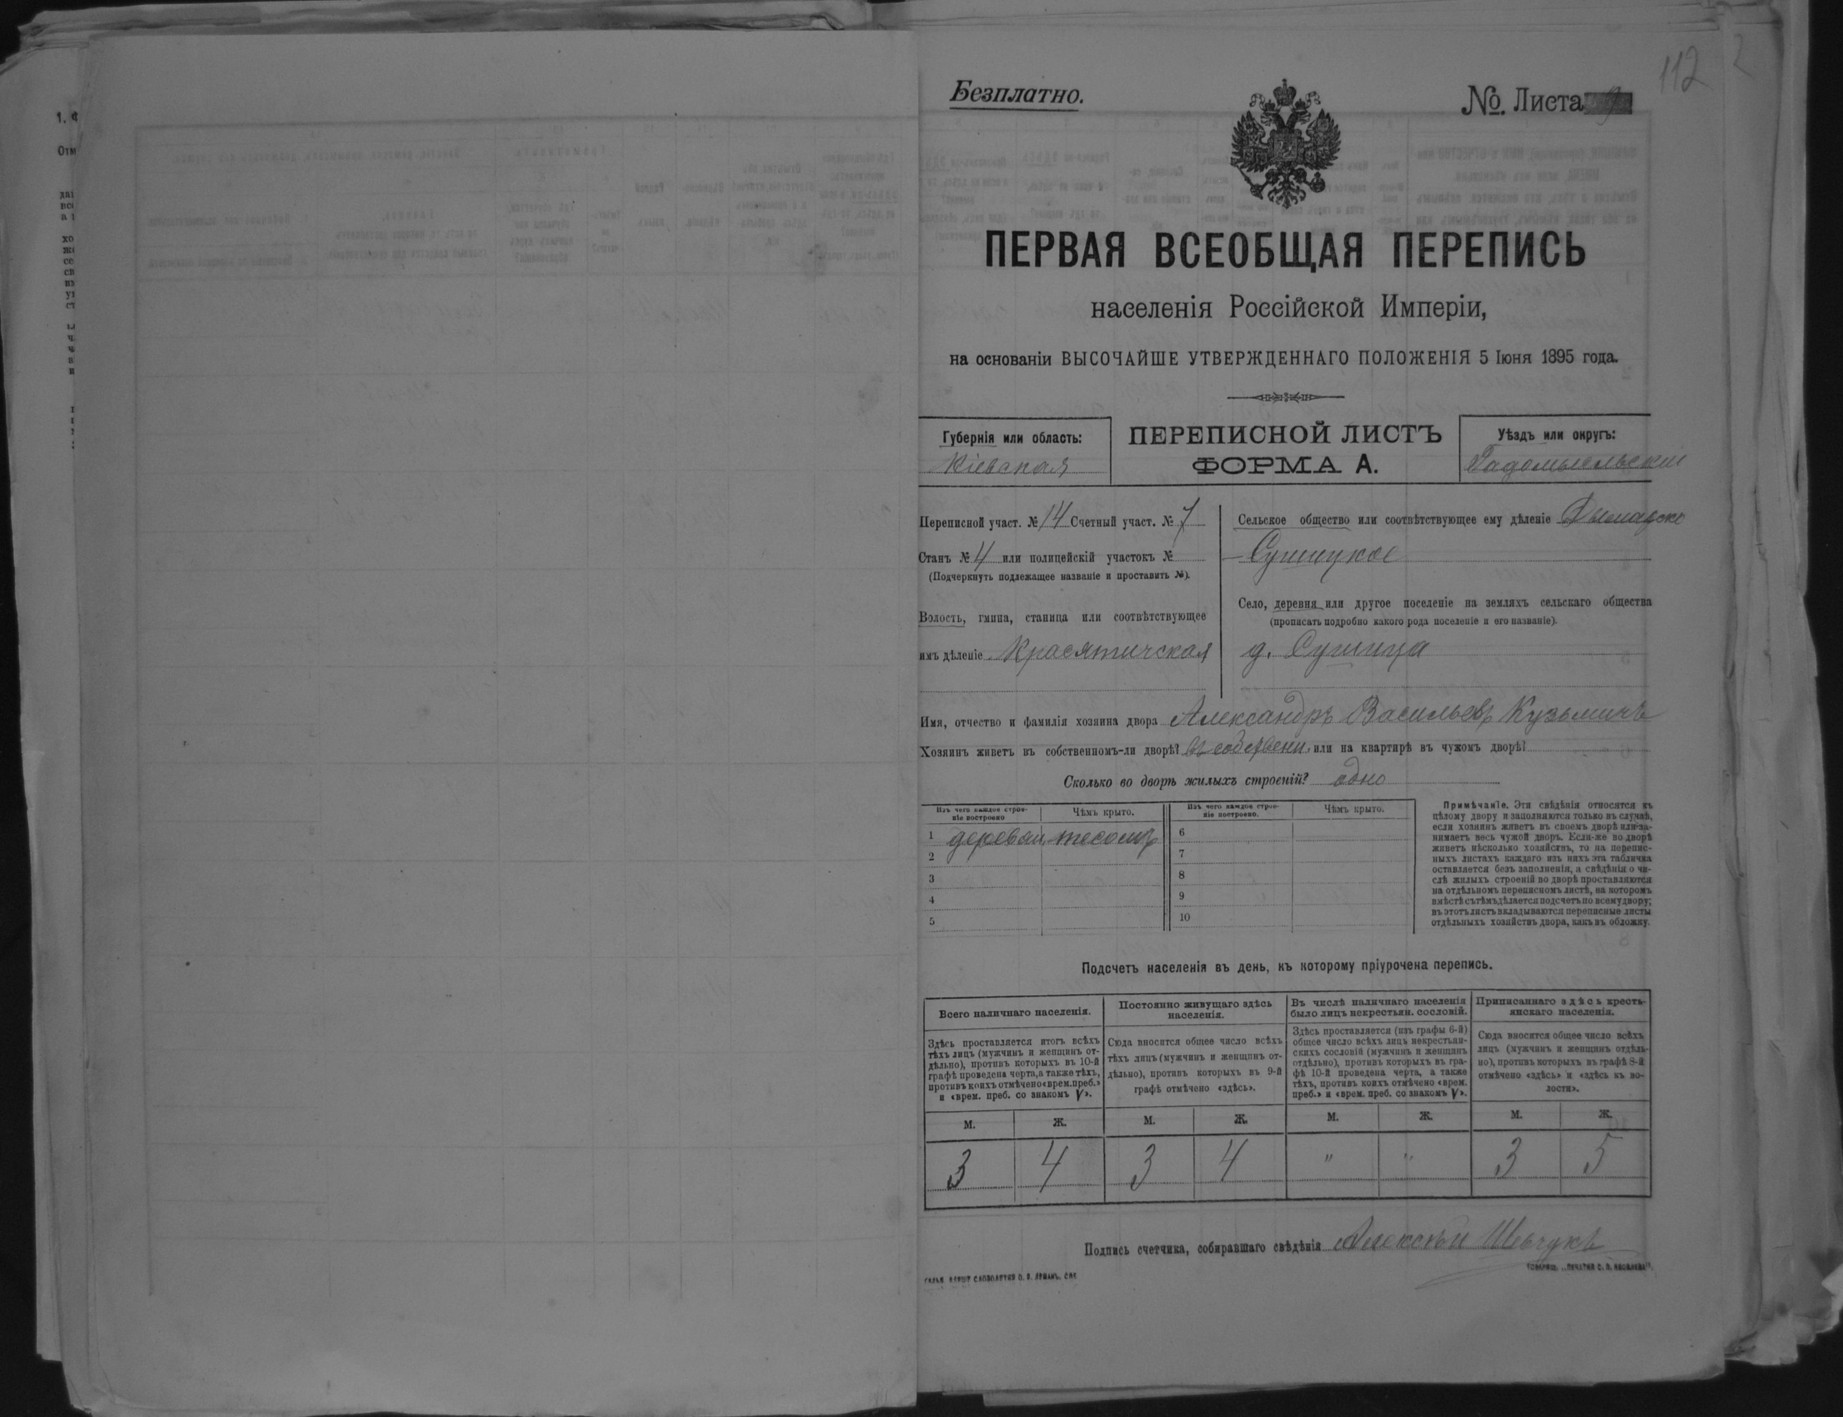 112
Безплатно.
№. Листа
ПЕРВАЯ ВСЕОБЩАЯ ПЕРЕПИСЬ
населенія Россійской Имперіи,
на основаніи ВЫСОЧАЙШЕ УТВЕРЖДЕННАГО ПОЛОЖЕНІЯ 5 Іюня 1895 года.
Губернія или область:
Кіевская
ПЕРЕПИСНОЙ ЛИСТЪ
ФОРМА А.
Уѣздъ или округъ:
Радомысльскій
Переписной участ. № 14 Счетный участ. № 7
Станъ № 4 или полицейскій участокъ №
(Подчеркнуть подлежащее названіе и проставить №).
Волость, гмина, станица или соотвѣтствующее
имъ дѣленіе Красятичская
Сельское общество или соотвѣтствующее ему дѣленіе
Сушицкое
Село, деревня или другое поселеніе на земляхъ сельскаго общества
(прописать подробно какого рода поселеніе и его названіе).
д. Сушица
Имя, отчество и фамилія хозяина двора Александръ Васильевъ Кузьмичъ
Хозяинъ живетъ въ собственномъ-ли дворѣ? въ собствен. или на квартирѣ въ чужомъ дворѣ?
Сколько во дворѣ жилыхъ строеній? одно
Изъ чего каждое строе-
ніе построено
Чѣмъ крыто.
Изъ чего каждое строе-
ніе построено.
Чѣмъ крыто.
1 деревян. тесомъ
2
3
4
5
6
7
8
9
10
Примѣчаніе. Эти свѣдѣнія относятся къ
цѣлому двору и заполняются только въ случаѣ,
если хозяинъ живетъ въ своемъ дворѣ или за-
нимаетъ весь чужой дворъ. Если-же во дворѣ
живетъ нѣсколько хозяйствъ, то на перепис-
ныхъ листахъ каждаго изъ нихъ эта табличка
оставляется безъ заполненія, а свѣдѣнія о чи-
слѣ жилыхъ строеній во дворѣ проставляются
на отдѣльномъ переписномъ листѣ, на которомъ
вмѣстѣ съ тѣмъ дѣлается подсчетъ по всему двору;
въ этотъ листъ вкладываются переписные листы
отдѣльныхъ хозяйствъ двора, какъ въ обложку.
Подсчетъ населенія въ день, къ которому пріурочена перепись.
Всего наличнаго населенія.
Здѣсь проставляется итогъ всѣхъ
тѣхъ лицъ (мужчинъ и женщинъ от-
дѣльно), противъ которыхъ въ 10-й
графѣ проведена черта, а также тѣхъ,
противъ коихъ отмѣчено «врем. преб.»
и «врем. преб. со знакомъ V».
Постоянно живущаго здѣсь
населенія.
Сюда вносится общее число всѣхъ
тѣхъ лицъ (мужчинъ и женщинъ от-
дѣльно), противъ которыхъ въ 9-й
графѣ отмѣчено «здѣсь».
Въ числѣ наличнаго населенія
было лицъ некрестьян. сословій.
Здѣсь проставляется (изъ графы 6-й)
общее число всѣхъ лицъ некрестьян-
скихъ сословій (мужчинъ и женщинъ
отдѣльно), противъ которыхъ въ гра-
фѣ 10-й проведена черта, а также
тѣхъ, противъ коихъ отмѣчено «врем.
преб.» и «врем. преб. со знакомъ V».
Приписаннаго здѣсь кресть-
янскаго населенія.
Сюда вносится общее число всѣхъ
лицъ (мужчинъ и женщинъ отдѣль-
но), противъ которыхъ въ графѣ 8-й
отмѣчено «здѣсь» и «здѣсь къ во-
лости».
М. Ж. М. Ж. М. Ж. М. Ж.
3 4 3 4 " " 3 5
Подпись счетчика, собиравшаго свѣдѣнія Алексѣй Шевчукъ